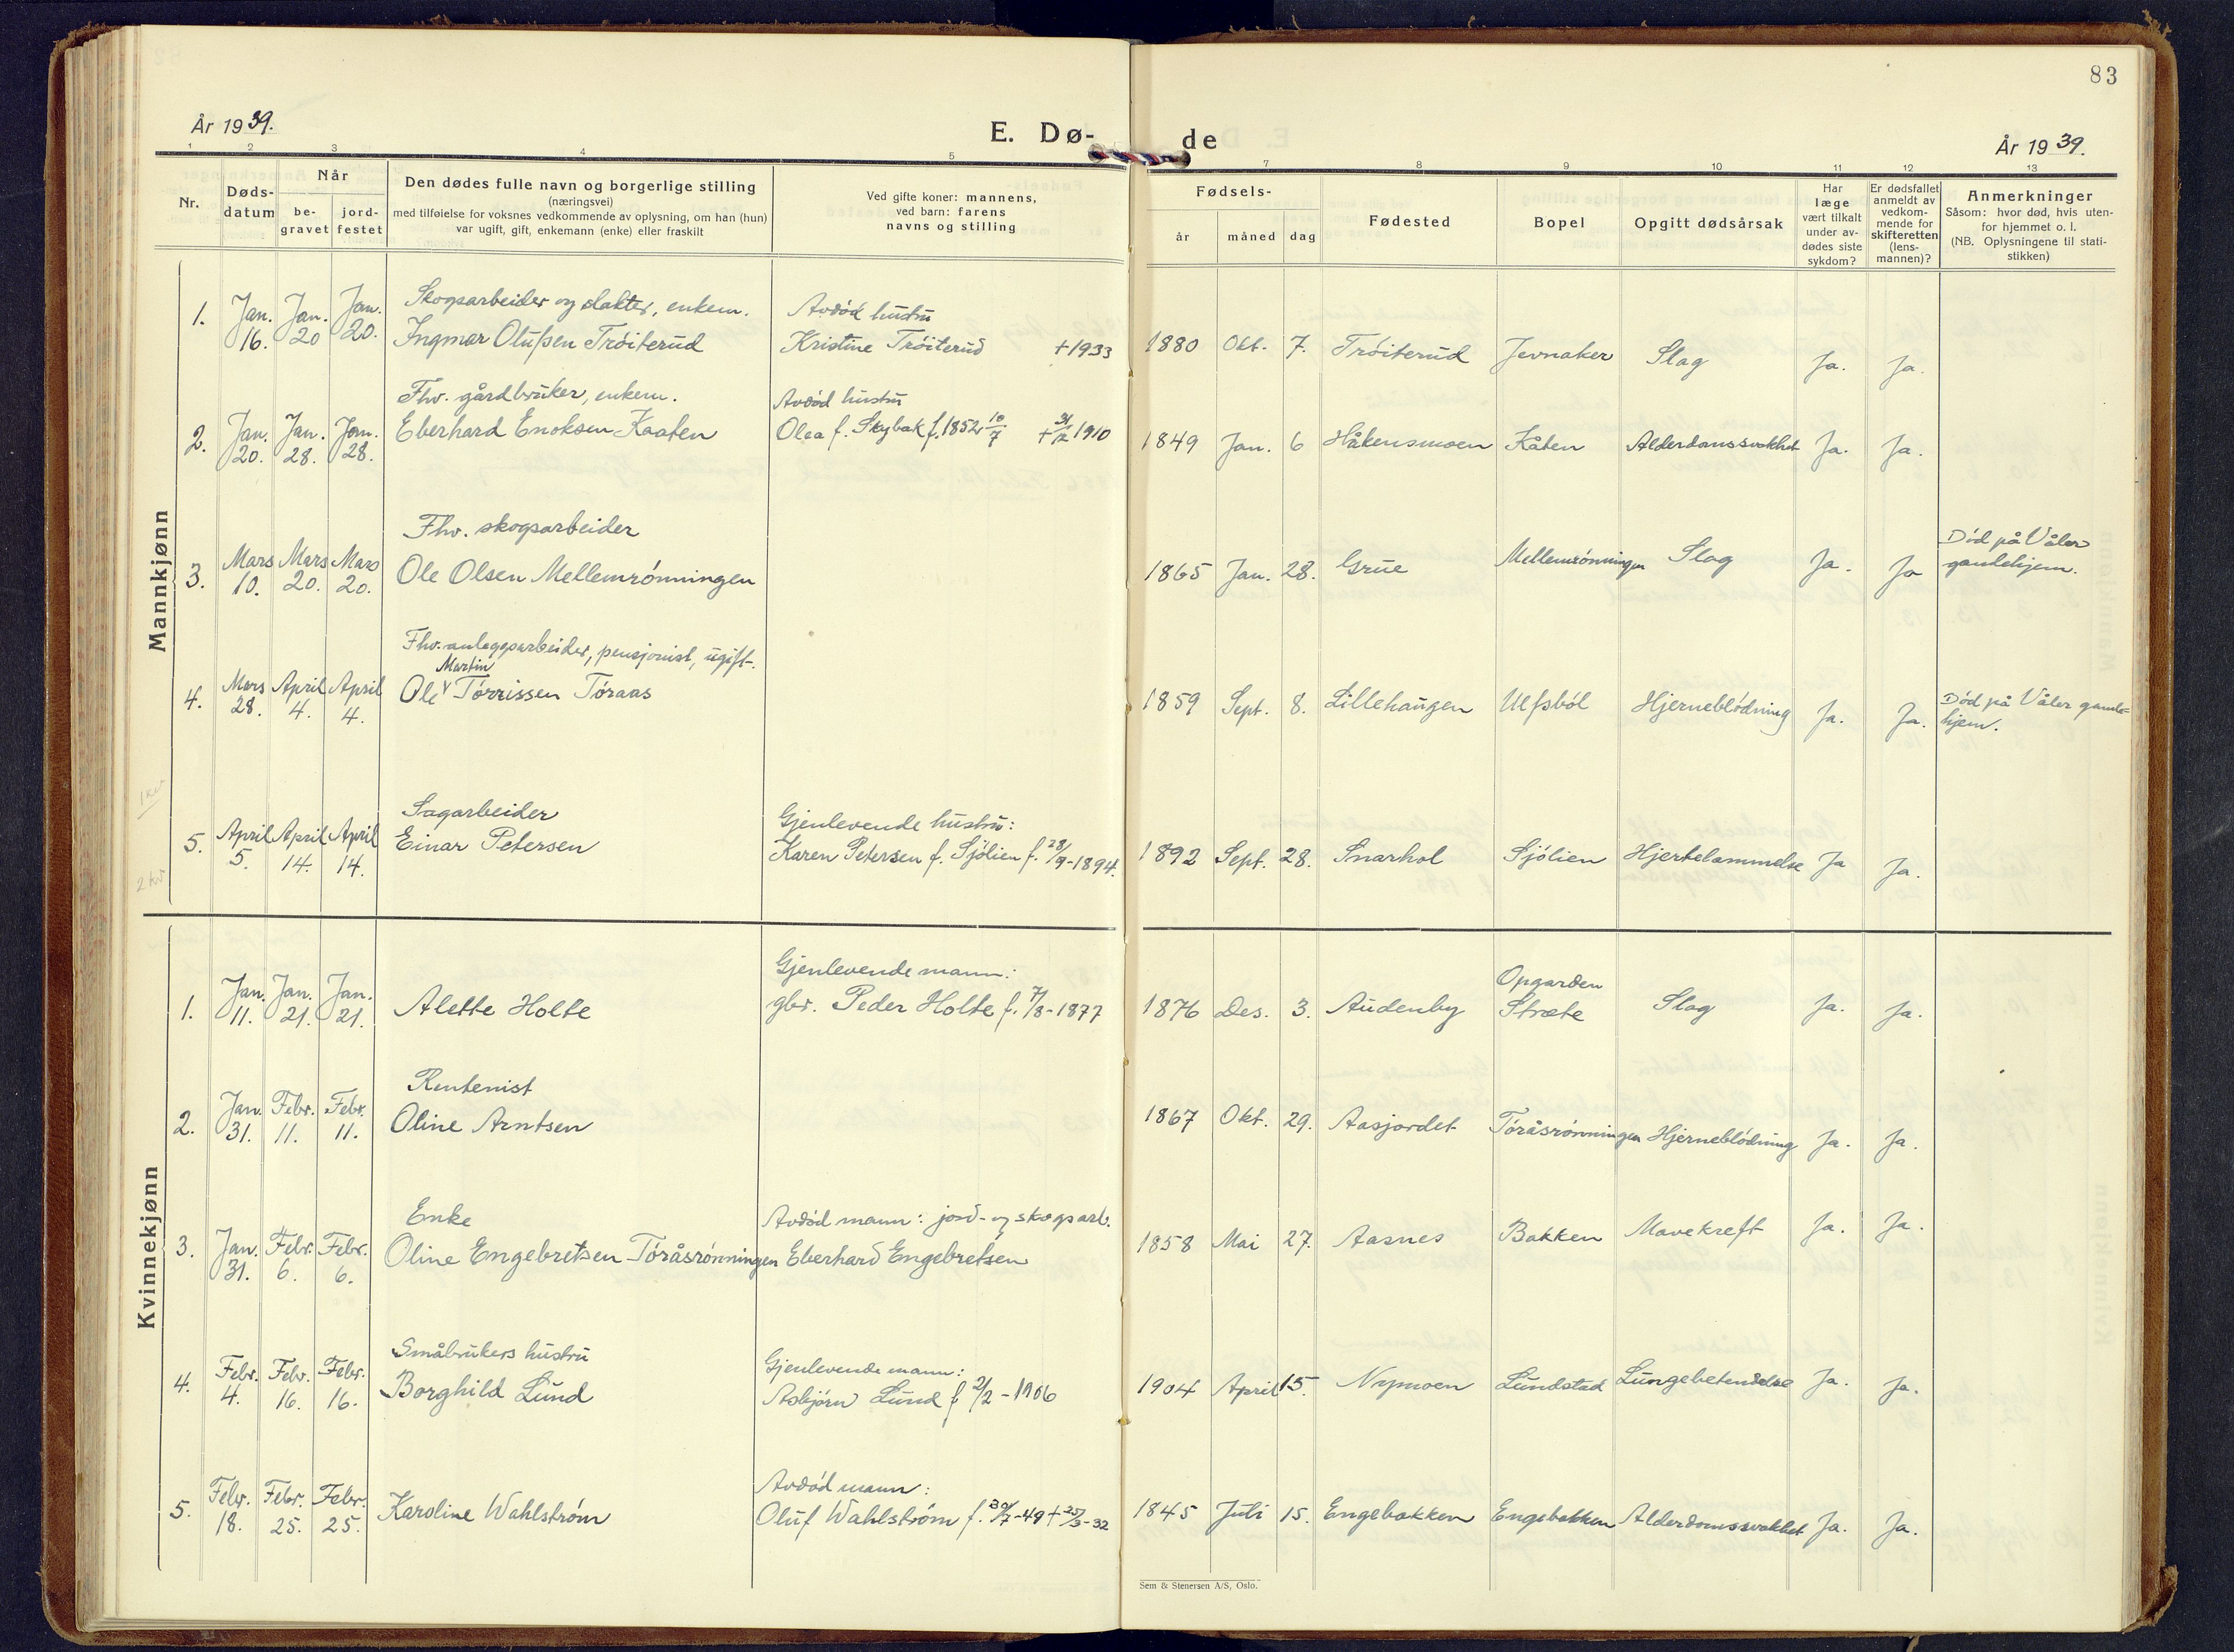 83
År 1939.
E. Dø-
de
År 1939.
1 2 3 4 5 7 8 9 10 11 12 13
Nr.
Døds-
datum
Når
be-
gravet
jord-
festet
Den dødes fulle navn og borgerlige stilling
(næringsvei)
med tilføielse for voksnes vedkommende av oplysning, om han (hun)
var ugift, gift, enkemann (enke) eller fraskilt
Ved gifte koner: mannens,
ved barn: farens
navns og stilling
Fødsels-
år måned dag
Fødested
Bopel
Opgitt dødsårsak
Har
læge
vært tilkalt
under av-
dødes siste
sykdom?
Er dødsfallet
anmeldt av
vedkom-
mende for
skifteretten
(lens-
mannen)?
Anmerkninger
Såsom: hvor død, hvis uten-
for hjemmet o. l.
(NB. Oplysningene til stati-
stikken)
Mannkjønn
Skogsarbeider og slakter, enkem. Avdød hustru
1. Jan. 16. Jan. 20 Jan. 20. Ingmar Olufsen Trøiterud Kristine Trøiterud +1933 1880 Okt. 7. Trøiterud Jevnaker Slag Ja. Ja.
Fhv. gårdbruker, enkem. Avdød hustru
2. Jan. 20. Jan. 28. Jan. 28. Eberhard Enoksen Kaaten Olea f. Skybak f. 1852 10/7 + 31/12 1910 1849 Jan. 6 Håkensmoen Kåten Alderdomssvakhet Ja. Ja.
Fhv. skogsarbeider
3. Mars 10. Mars 20. Mars 20. Ole Olsen Mellemrønningen 1865 Jan. 28. Grue Mellemrønningen Slag Ja. Ja Død på Våler
gamlehjem.
Fhv. anleggsarbeider, pensjonist, ugift.
Martin
4. Mars 28. April 4. April 4. Ole Tørrissen Tøraas 1859 Sept. 8. Lillehaugen Ulfsbøl Hjerneblødning Ja. Ja. Død på Våler gamle-
hjem.
Sagarbeider Gjenlevende hustru:
5. April 5. April 14. April 14. Einar Petersen Karen Petersen f. Sjølien f. 28/9-1894. 1892 Sept. 28. Snarhol Sjølien Hjertelammelse Ja Ja.
Kvinnekjønn
Gjenlevende mann: Opgarden
1. Jan. 11. Jan. 21. Jan. 21. Alette Holte gbr. Peder Holte f. 7/8-1877 1876 Des. 3. Audenby Stræte Slag Ja. Ja.
Rentenist
2. Jan. 31. Febr. 11. Febr. 11. Oline Arntsen 1867 Okt. 29. Aasjordet Tøråsrønningen Hjerneblødning Ja. Ja.
Enke Avdød mann: jord- og skogsarb.
3. Jan. 31. Febr. 6. Febr. 6. Oline Engebretsen Tøråsrønningen Eberhard Engebretsen 1858 Mai 27. Aasnes Bakken Mavekreft Ja. Ja.
Småbrukers hustru Gjenlevende mann:
4. Febr. 4. Febr. 16. Febr. 16. Borghild Lund Asbjørn Lund f 2/2-1906 1904 April 15. Nymoen Lundstad Lungebetendelse Ja. Ja.
Avdød mann:
5. Febr. 18. Febr. 25. Febr. 25. Karoline Wahlstrøm Oluf Wahlstrøm f. 30/7-49 + 25/3-32 1845 Juli 15. Engebakken Engebakken Alderdomssvakhet Ja. Ja.
Sem & Stenersen A/S, Oslo.